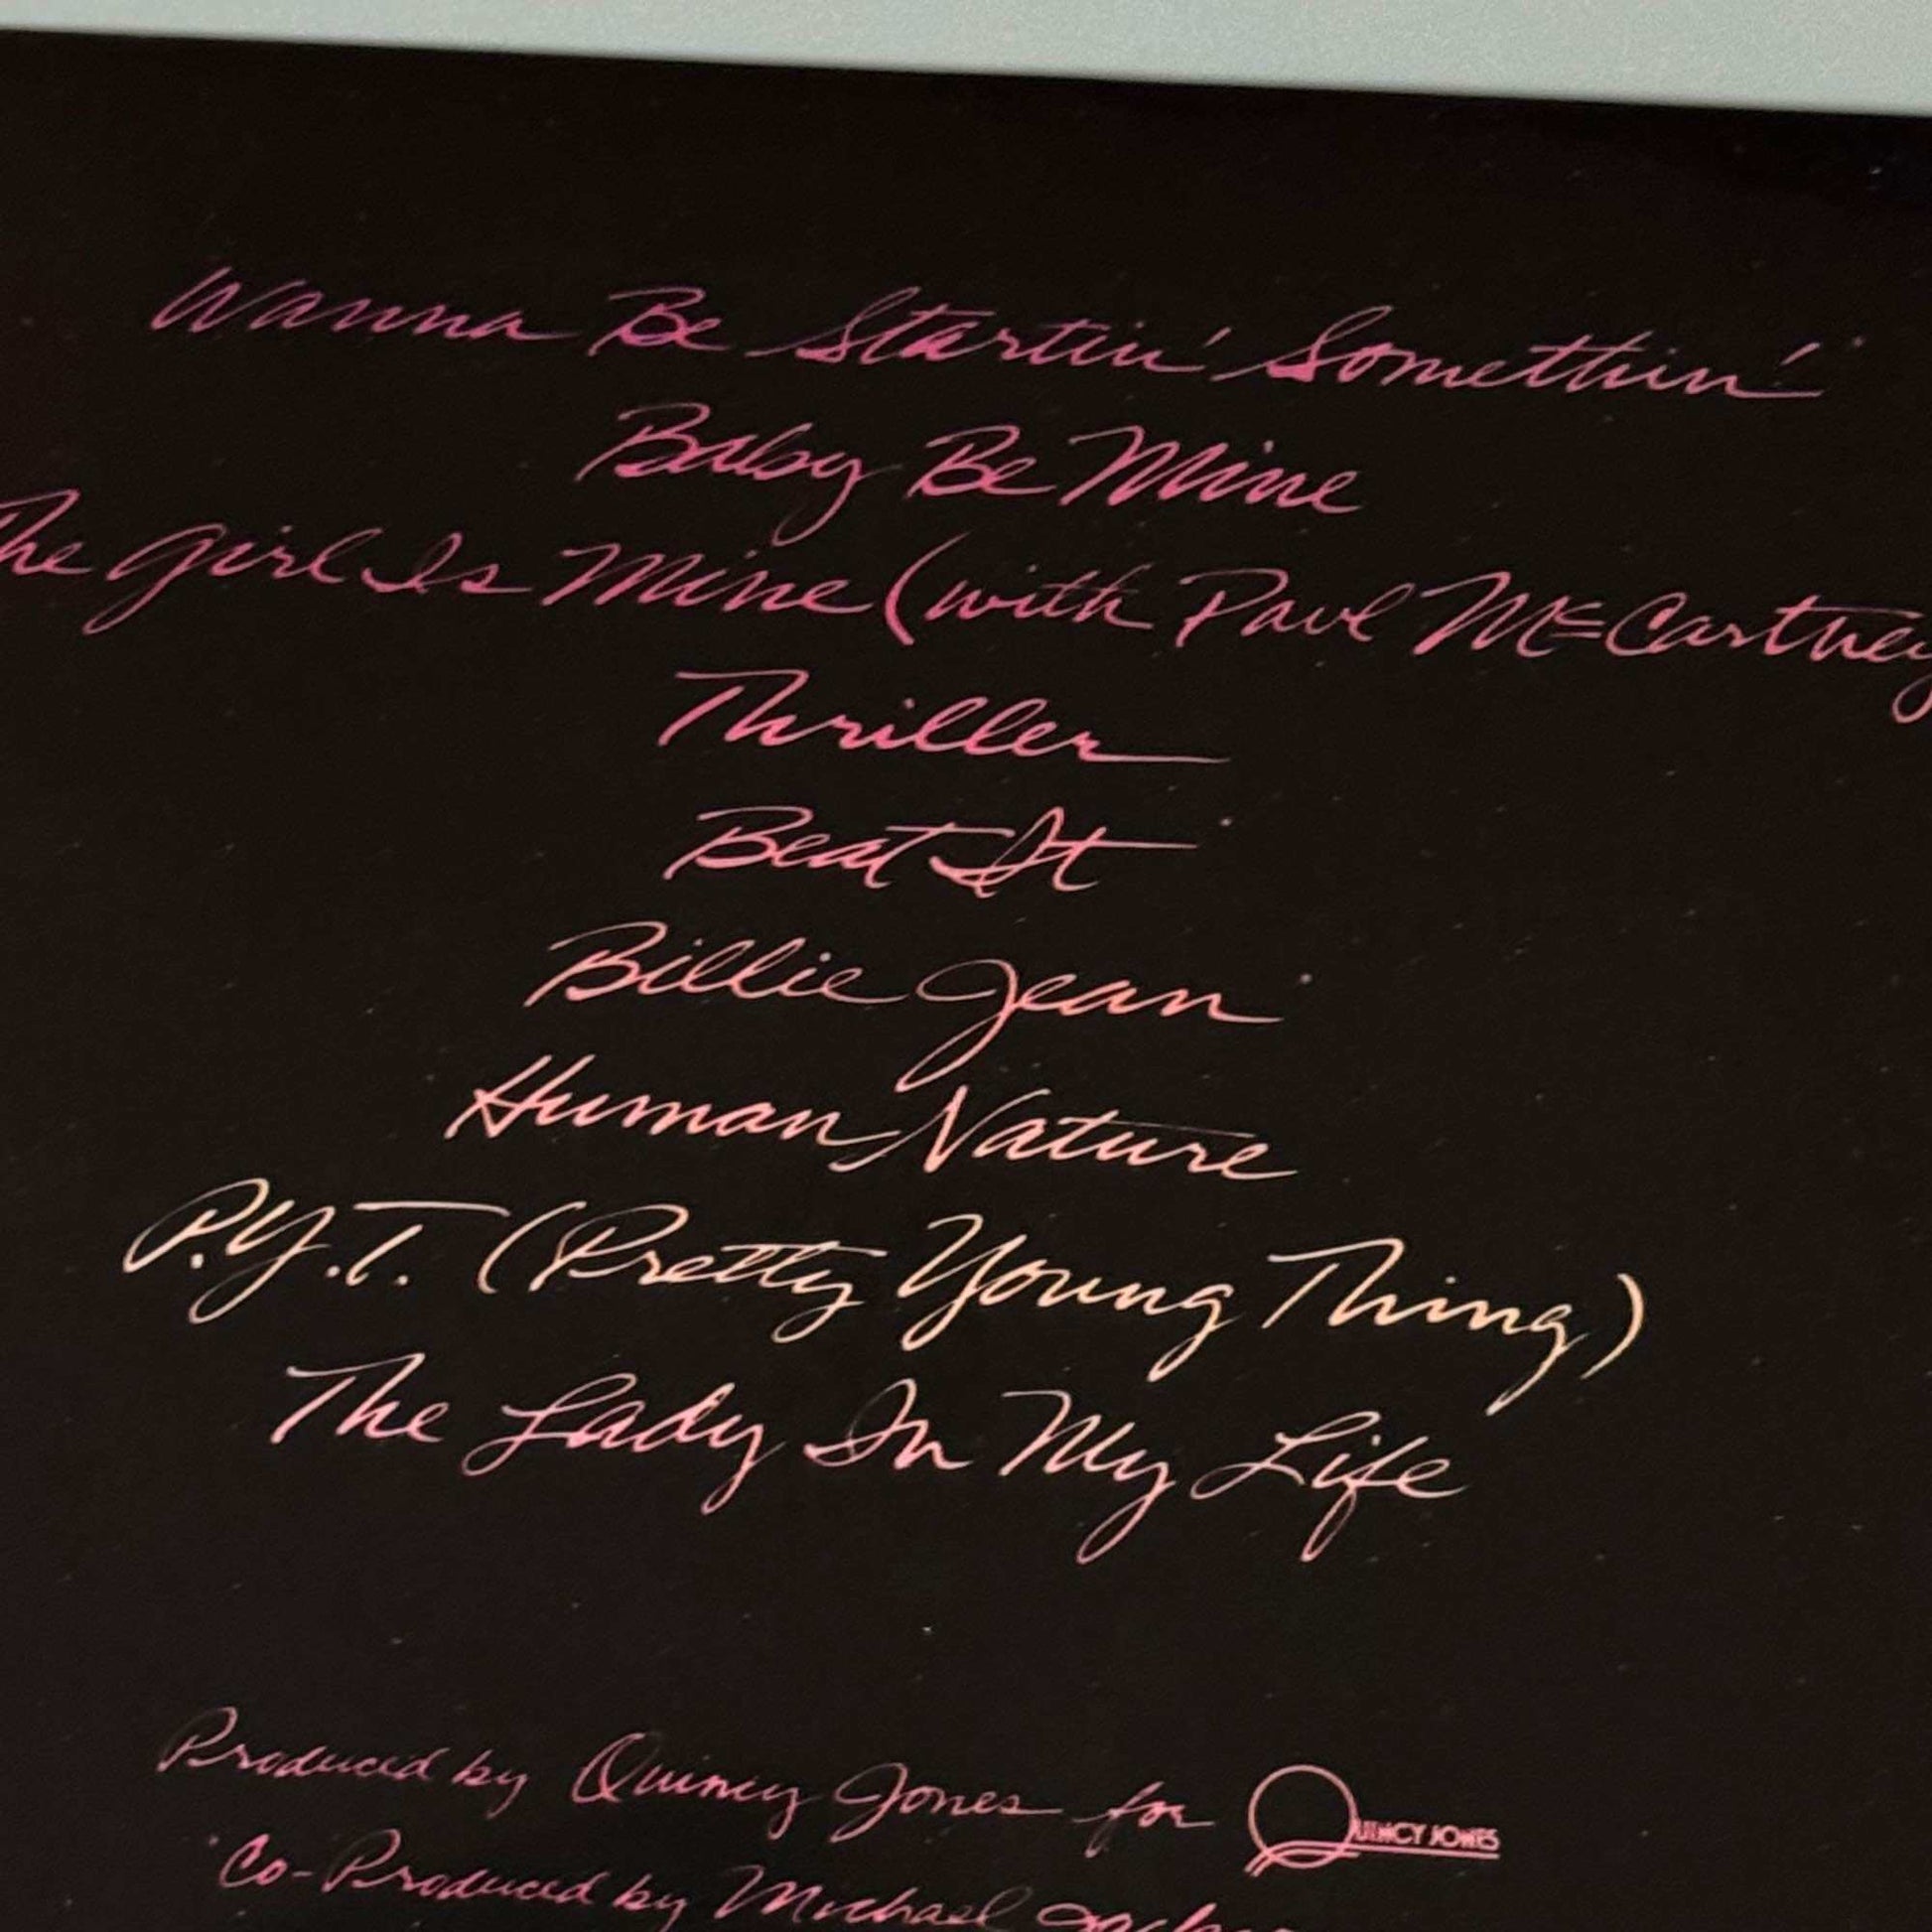 Wanna Be Startin' Somethin'
Baby Be Mine
The Girl Is Mine (with Paul McCartney
Thriller
Beat It
Billie Jean
Human Nature
P.Y.T. (Pretty Young Thing)
The Lady In My Life
Produced by Quincy Jones for QUINCY JONES
Co-Produced by Michael